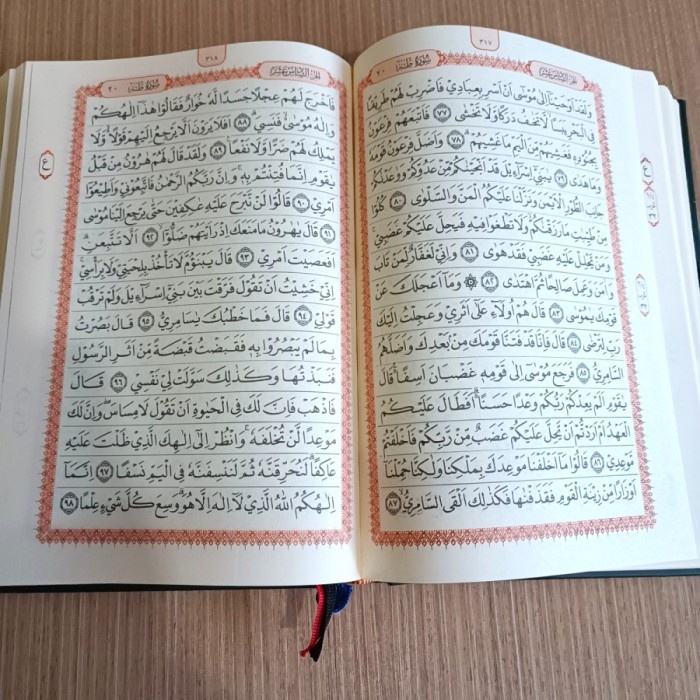 ٣١٧
سورة طه ٢٠
الجزء السادس عشر
وَلَقَدْ اَوْحَيْنَآ اِلٰى مُوْسٰٓى اَنْ اَسْرِ بِعِبَادِيْ فَاضْرِبْ لَهُمْ طَرِيْقًا
فِى الْبَحْرِ يَبَسًاۙ لَّا تَخٰفُ دَرَكًا وَّلَا تَخْشٰى ٧٧ فَاَتْبَعَهُمْ فِرْعَوْنُ
بِجُنُوْدِهٖ فَغَشِيَهُمْ مِّنَ الْيَمِّ مَا غَشِيَهُمْۗ ٧٨ وَاَضَلَّ فِرْعَوْنُ قَوْمَهٗ
وَمَا هَدٰى ٧٩ يٰبَنِيْٓ اِسْرَاۤءِيْلَ قَدْ اَنْجَيْنٰكُمْ مِّنْ عَدُوِّكُمْ وَوٰعَدْنٰكُمْ
جَانِبَ الطُّوْرِ الْاَيْمَنَ وَنَزَّلْنَا عَلَيْكُمُ الْمَنَّ وَالسَّلْوٰى ٨٠ كُلُوْا
مِنْ طَيِّبٰتِ مَا رَزَقْنٰكُمْۙ وَلَا تَطْغَوْا فِيْهِ فَيَحِلَّ عَلَيْكُمْ غَضَبِيْۚ
وَمَنْ يَّحْلِلْ عَلَيْهِ غَضَبِيْ فَقَدْ هَوٰى ٨١ وَاِنِّيْ لَغَفَّارٌ لِّمَنْ تَابَ
وَاٰمَنَ وَعَمِلَ صَالِحًا ثُمَّ اهْتَدٰى ٨٢ ۞ وَمَآ اَعْجَلَكَ عَنْ
قَوْمِكَ يٰمُوْسٰى ٨٣ قَالَ هُمْ اُولَاۤءِ عَلٰٓى اَثَرِيْ وَعَجِلْتُ اِلَيْكَ
رَبِّ لِتَرْضٰى ٨٤ قَالَ فَاِنَّا قَدْ فَتَنَّا قَوْمَكَ مِنْۢ بَعْدِكَ وَاَضَلَّهُمُ
السَّامِرِيُّ ٨٥ فَرَجَعَ مُوْسٰٓى اِلٰى قَوْمِهٖ غَضْبَانَ اَسِفًا ەۚ قَالَ
يٰقَوْمِ اَلَمْ يَعِدْكُمْ رَبُّكُمْ وَعْدًا حَسَنًا ەۗ اَفَطَالَ عَلَيْكُمُ
الْعَهْدُ اَمْ اَرَدْتُّمْ اَنْ يَّحِلَّ عَلَيْكُمْ غَضَبٌ مِّنْ رَّبِّكُمْ فَاَخْلَفْتُمْ
مَّوْعِدِيْ ٨٦ قَالُوْا مَآ اَخْلَفْنَا مَوْعِدَكَ بِمَلْكِنَا وَلٰكِنَّا حُمِّلْنَآ
اَوْزَارًا مِّنْ زِيْنَةِ الْقَوْمِ فَقَذَفْنٰهَا فَكَذٰلِكَ اَلْقَى السَّامِرِيُّ ۙ ٨٧
ع
٣١٨
الجزء السادس عشر
سورة طه ٢٠
فَاَخْرَجَ لَهُمْ عِجْلًا جَسَدًا لَّهٗ خُوَارٌ فَقَالُوْا هٰذَآ اِلٰهُكُمْ
وَاِلٰهُ مُوْسٰى ەۙ فَنَسِيَ ۗ ٨٨ اَفَلَا يَرَوْنَ اَلَّا يَرْجِعُ اِلَيْهِمْ قَوْلًا ەۙ وَّلَا
يَمْلِكُ لَهُمْ ضَرًّا وَّلَا نَفْعًا ٨٩ وَلَقَدْ قَالَ لَهُمْ هٰرُوْنُ مِنْ قَبْلُ
يٰقَوْمِ اِنَّمَا فُتِنْتُمْ بِهٖۚ وَاِنَّ رَبَّكُمُ الرَّحْمٰنُ فَاتَّبِعُوْنِيْ وَاَطِيْعُوْٓا
اَمْرِيْ ٩٠ قَالُوْا لَنْ نَّبْرَحَ عَلَيْهِ عٰكِفِيْنَ حَتّٰى يَرْجِعَ اِلَيْنَا مُوْسٰى
٩١ قَالَ يٰهٰرُوْنُ مَا مَنَعَكَ اِذْ رَاَيْتَهُمْ ضَلُّوْٓا ۙ ٩٢ اَلَّا تَتَّبِعَنِۗ
اَفَعَصَيْتَ اَمْرِيْ ٩٣ قَالَ يَبْنَؤُمَّ لَا تَأْخُذْ بِلِحْيَتِيْ وَلَا بِرَأْسِيْۚ
اِنِّيْ خَشِيْتُ اَنْ تَقُوْلَ فَرَّقْتَ بَيْنَ بَنِيْٓ اِسْرَاۤءِيْلَ وَلَمْ تَرْقُبْ
قَوْلِيْ ٩٤ قَالَ فَمَا خَطْبُكَ يٰسَامِرِيُّ ٩٥ قَالَ بَصُرْتُ
بِمَا لَمْ يَبْصُرُوْا بِهٖ فَقَبَضْتُ قَبْضَةً مِّنْ اَثَرِ الرَّسُوْلِ
فَنَبَذْتُهَا وَكَذٰلِكَ سَوَّلَتْ لِيْ نَفْسِيْ ٩٦ قَالَ
فَاذْهَبْ فَاِنَّ لَكَ فِى الْحَيٰوةِ اَنْ تَقُوْلَ لَا مِسَاسَۖ وَاِنَّ لَكَ
مَوْعِدًا لَّنْ تُخْلَفَهٗۚ وَانْظُرْ اِلٰٓى اِلٰهِكَ الَّذِيْ ظَلْتَ عَلَيْهِ
عَاكِفًا ۗ لَنُحَرِّقَنَّهٗ ثُمَّ لَنَنْسِفَنَّهٗ فِى الْيَمِّ نَسْفًا ٩٧ اِنَّمَآ
اِلٰهُكُمُ اللّٰهُ الَّذِيْ لَآ اِلٰهَ اِلَّا هُوَۗ وَسِعَ كُلَّ شَيْءٍ عِلْمًا ٩٨
ع